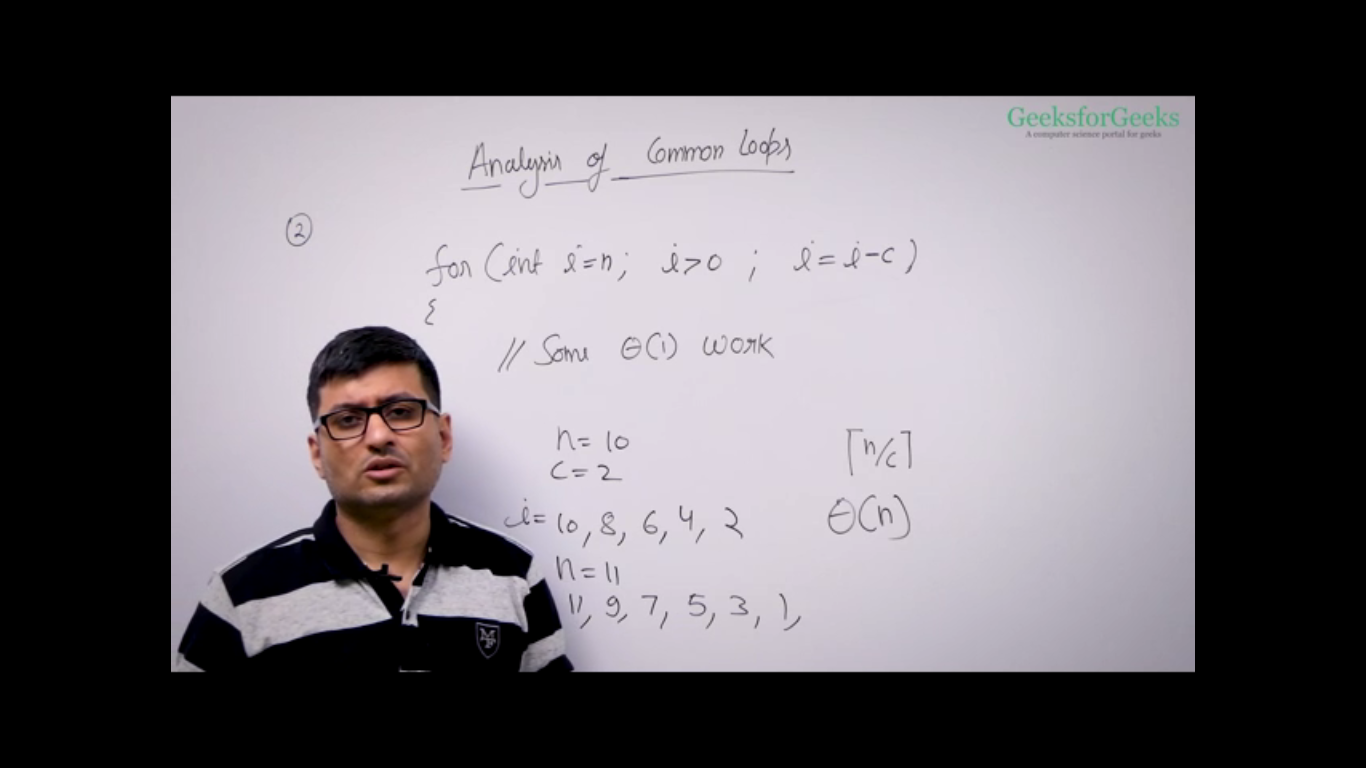 GeeksforGeeks
A computer science portal for geeks
Analysis of Common Loops
②
for (int i=n; i>0 ; i=i-c)
{
// Some Θ(1) work
n=10
c=2
⌈n/c⌉
i=10, 8, 6, 4, 2
Θ(n)
n=11
11, 9, 7, 5, 3, 1,